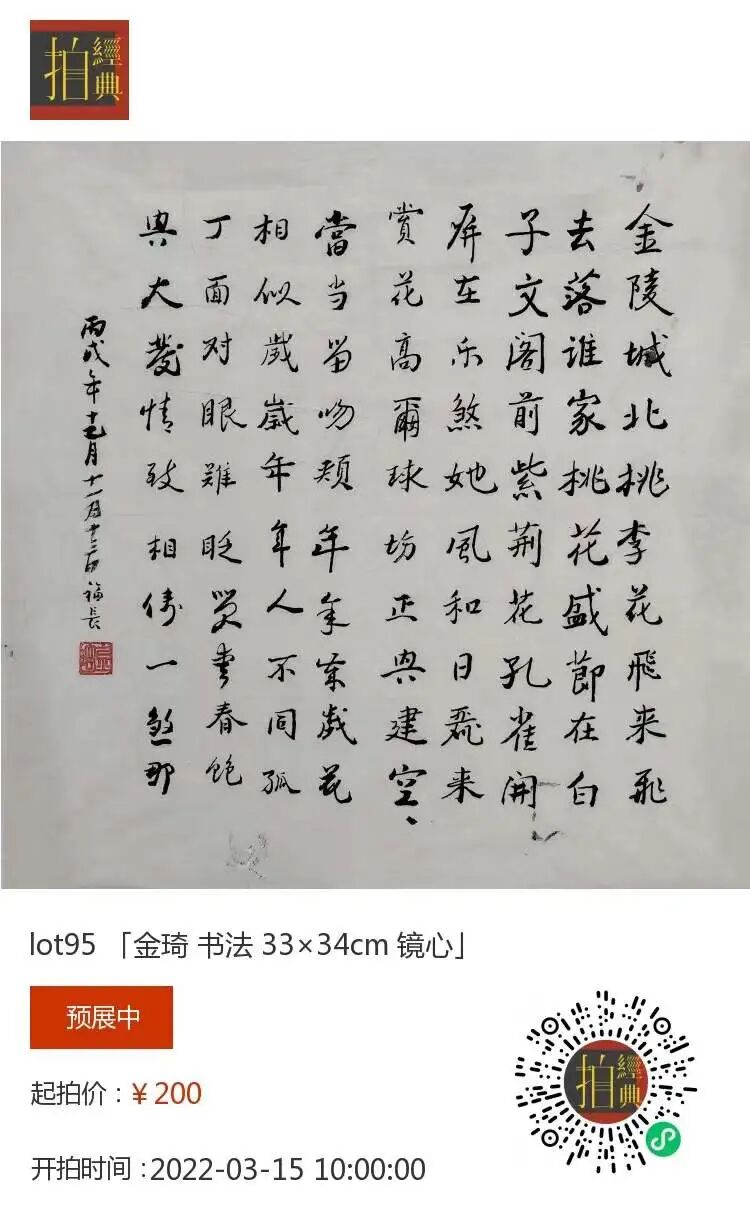 拍 經典
金陵城北桃李花飛来飛
去落谁家桃花盛節在白
子文阁前紫荆花孔雀開
屏在乐煞她風和日麗来
赏花高爾球场正興建空、
當当留吻頰年年歲歲花
相似歲歲年年人不同孤
丁面对眼難眨 春饱
興大發情致相倚一煞那
丙戌年
lot95 「金琦 书法 33×34cm 镜心」
预展中
起拍价：¥ 200
开拍时间：2022-03-15 10:00:00
拍 經典